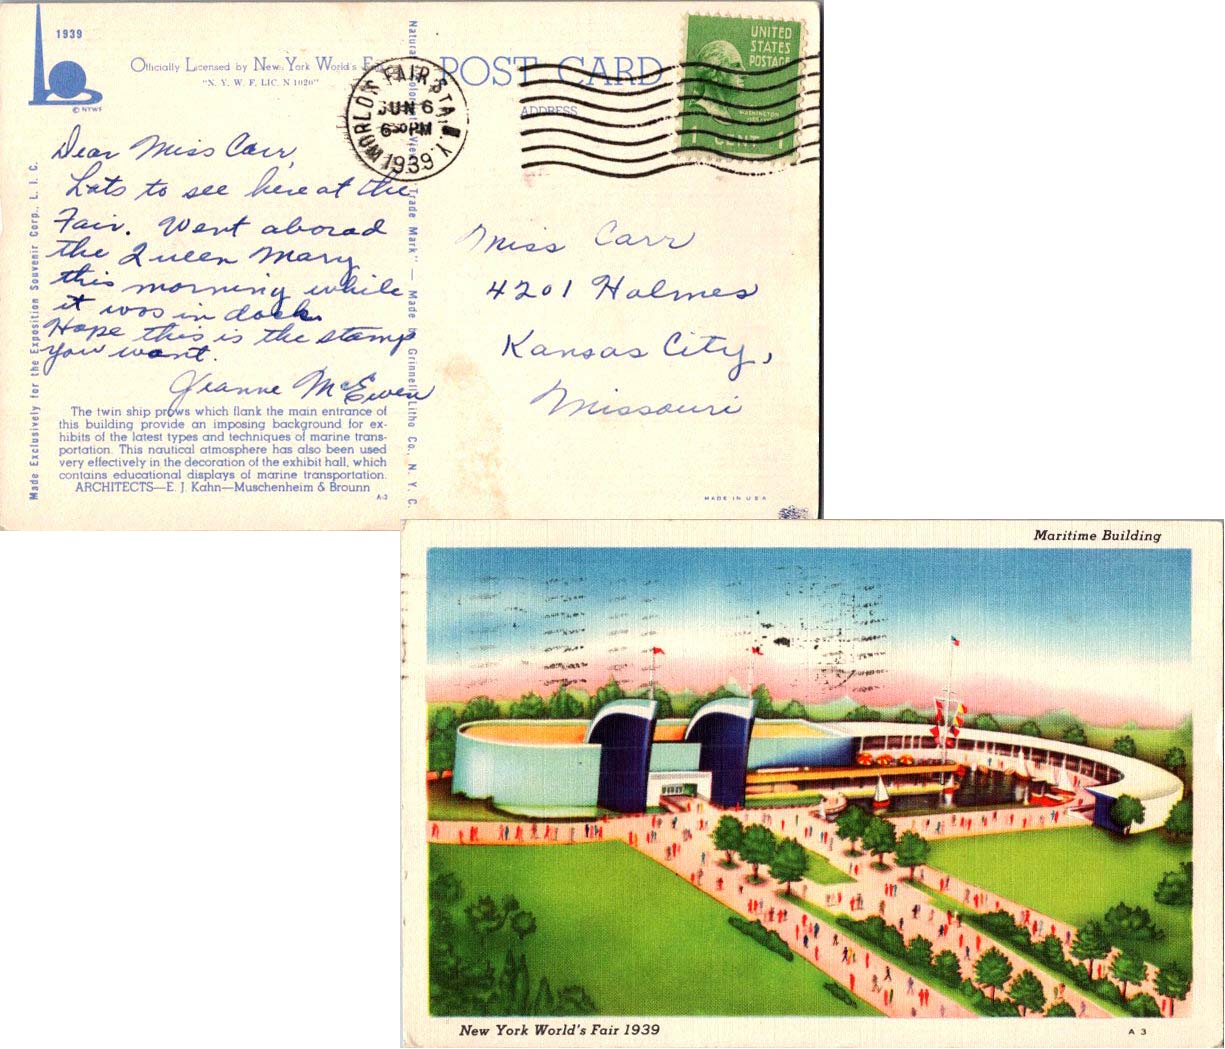 1939
© NYWF
Officially Licensed by New York World's Fair
"N. Y. W. F. LIC. N 1020"
POST CARD
ADDRESS
WORLDS FAIR STA. N.Y.
JUN 6
6 30 PM
1939
UNITED
STATES
POSTAGE
WASHINGTON
1 CENT 1
Dear Miss Carr,
Lots to see here at the
Fair. Went aborad
the Queen Mary
this morning while
it was in dock.
Hope this is the stamp
you want.
Jeanne McEwen
Miss Carr
4201 Holmes
Kansas City,
Missouri
The twin ship prows which flank the main entrance of
this building provide an imposing background for ex-
hibits of the latest types and techniques of marine trans-
portation. This nautical atmosphere has also been used
very effectively in the decoration of the exhibit hall, which
contains educational displays of marine transportation.
ARCHITECTS—E. J. Kahn—Muschenheim & Brounn
A-3
Made Exclusively for the Exposition Souvenir Corp., L. I. C.
Natural View" Trade Mark" — Made by Grinnell Litho Co., N. Y. C.
MADE IN USA
Maritime Building
New York World's Fair 1939
A 3